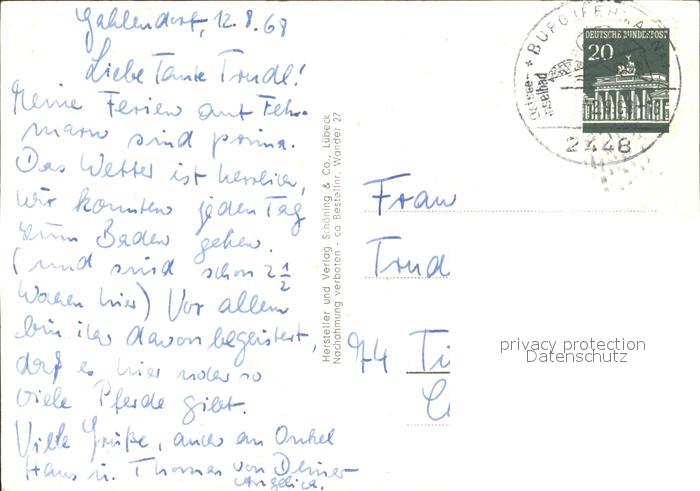 Gahlendorf, 12.8.68
Liebe Tante Trudl!
Meine Ferien auf Feh-
marn sind prima.
Das Wetter ist herrlich,
wir konnten jeden Tag
zum Baden gehen.
(und sind schon 2 1/2
Wochen hier) Vor allem
bin ich davon begeistert,
daß es hier noch so
viele Pferde gibt.
Viele Grüße, auch an Onkel
Hans u. Thomas von Deiner
Angelica.
Hersteller und Verlag Schöning & Co., Lübeck
Nachahmung verboten - ca Bestellnr. Wander 27
* BURG (FEHMARN)
Ostsee-
inselbad
2448
DEUTSCHE BUNDESPOST
20
Frau
Trud
74 Ti
privacy protection
Datenschutz